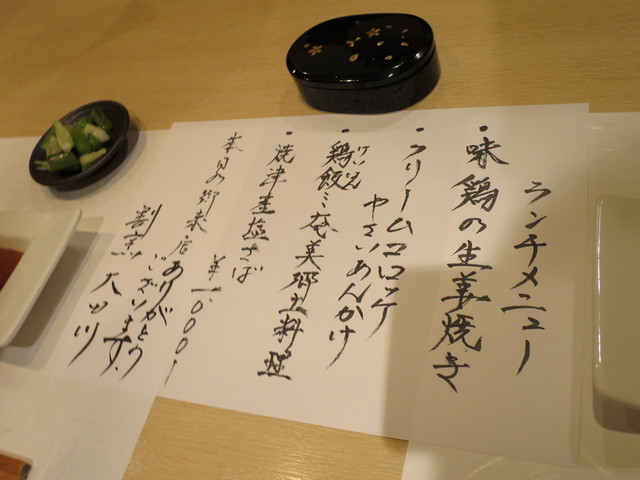 ランチメニュー
・味鶏の生姜焼き
・クリームコロッケ
やさいあんかけ
・鶏飯 奄美郷土料理
けいはん
・焼津産塩さば
¥一、〇〇〇ー
本日の御来店ありがとう
ございます。
割烹 大田川